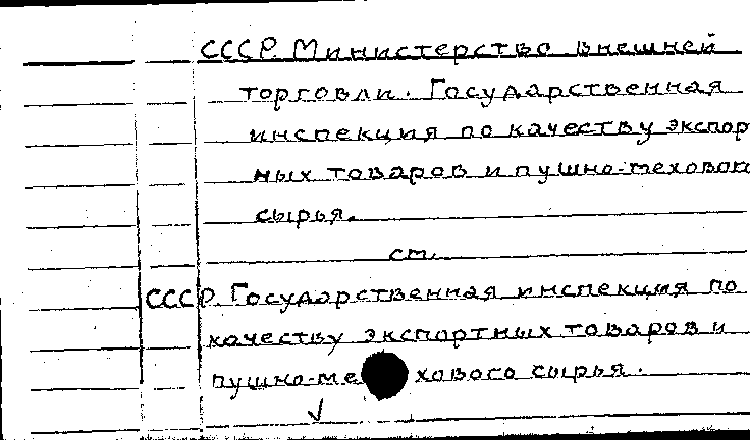 СССР. Министерство внешней
торговли. Государственная
инспекция по качеству экспор
ных товаров и пушно-мехового
сырья.
см.
СССР. Государственная инспекция по
качеству экспортных товаров и
пушно-мехового сырья.